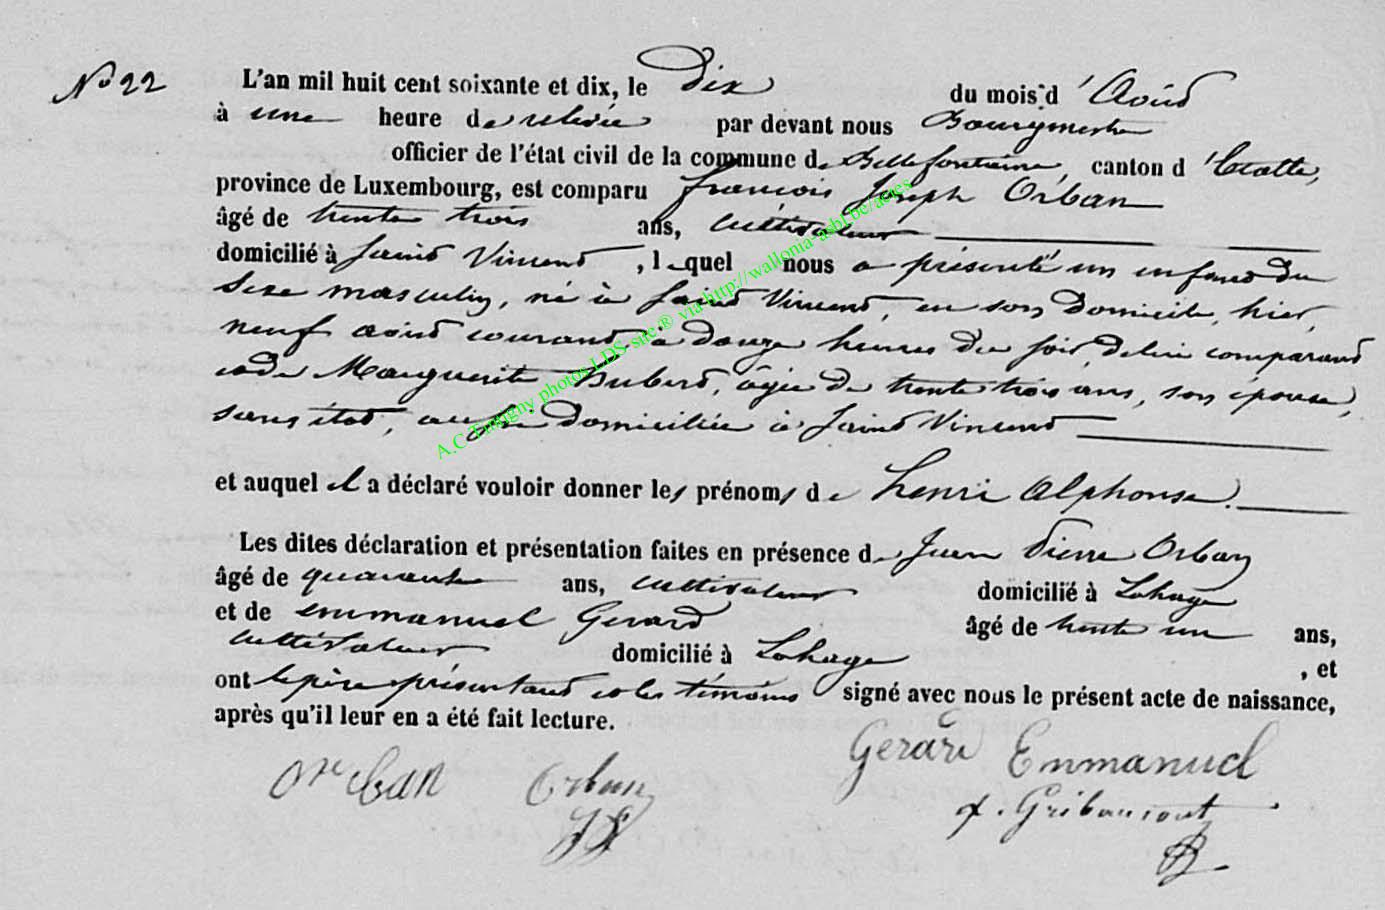 No 22
L'an mil huit cent soixante et dix, le Dix du mois d'Août
à une heure de relevée par devant nous Bourgmestre
officier de l'état civil de la commune de Bellefontaine, canton d'Etalle,
province de Luxembourg, est comparu françois Joseph Orban
âgé de trente trois ans, cultivateur
domicilié à saint Vincent, lequel nous a présenté un enfant du
sexe masculin, né à saint Vincent, en son Domicile, hier,
neuf août courant, à douze heures du soir, de lui comparant
et de Marguerite Hubert, âgée de trente trois ans, son épouse,
sans état, aussi domiciliée à saint Vincent
et auquel il a déclaré vouloir donner les prénoms de henri alphonse.
Les dites déclaration et présentation faites en présence de Jean Pierre Orban
âgé de quarante ans, cultivateur domicilié à Lahage
et de emmanuel Gerard âgé de trente un ans,
cultivateur domicilié à Lahage, et
ont le père présentant et les témoins signé avec nous le présent acte de naissance,
après qu'il leur en a été fait lecture.
Orban Orban Gerard Emmanuel
JP
A.C. Tintigny photos LDS-site ® via http://wallonia-asbl.be/actes